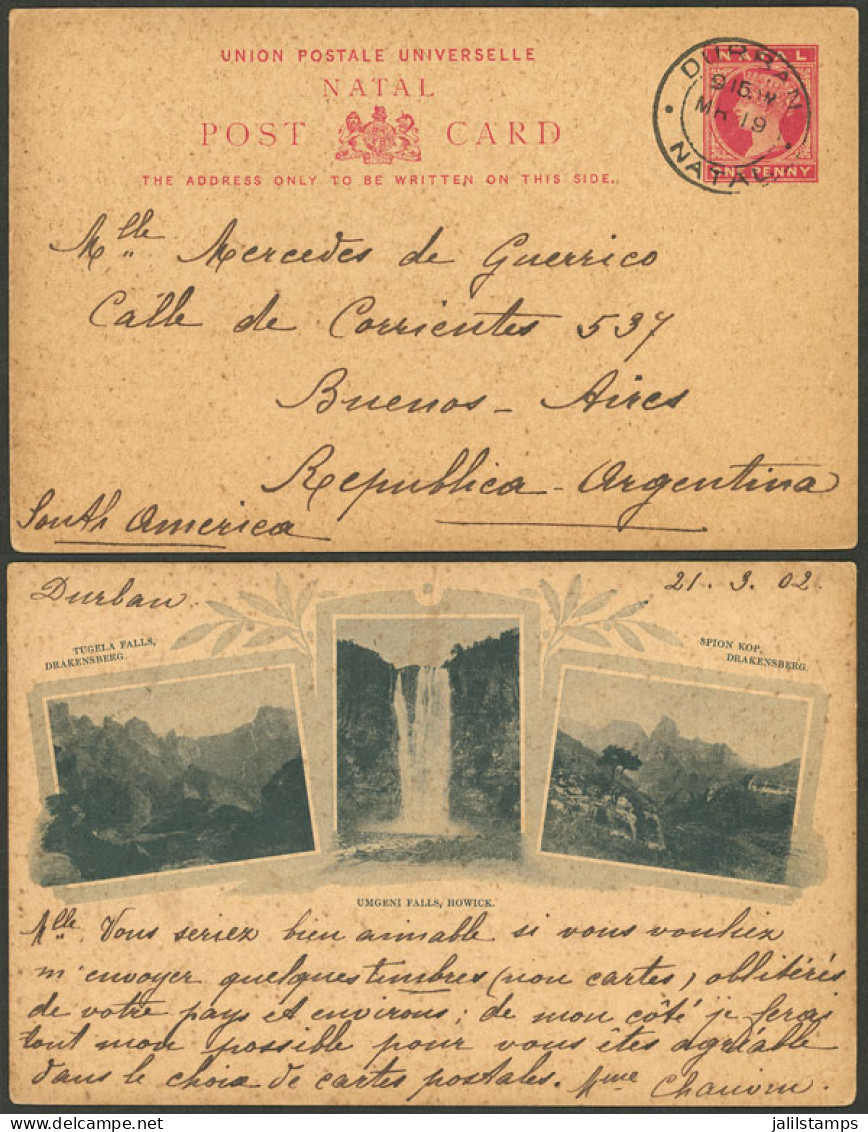 UNION POSTALE UNIVERSELLE
NATAL
POST CARD
THE ADDRESS ONLY TO BE WRITTEN ON THIS SIDE.
NATAL
ONE PENNY
DURBAN
MR 19
NATAL
Mlle Mercedes de Guerrico
Calle de Corrientes 537
Buenos-Aires
Republica-Argentina
South America
Durban 21.3.02
TUGELA FALLS,
DRAKENSBERG.
SPION KOP,
DRAKENSBERG.
UMGENI FALLS, HOWICK.
Mlle. Vous seriez bien aimable si vous vouliez
m'envoyer quelques timbres (non cartes) oblitérés
de votre pays et environs; de mon côté je ferai
tout mon possible pour vous êtes agréable
dans le choix de cartes postales. Mme
jalilstamps